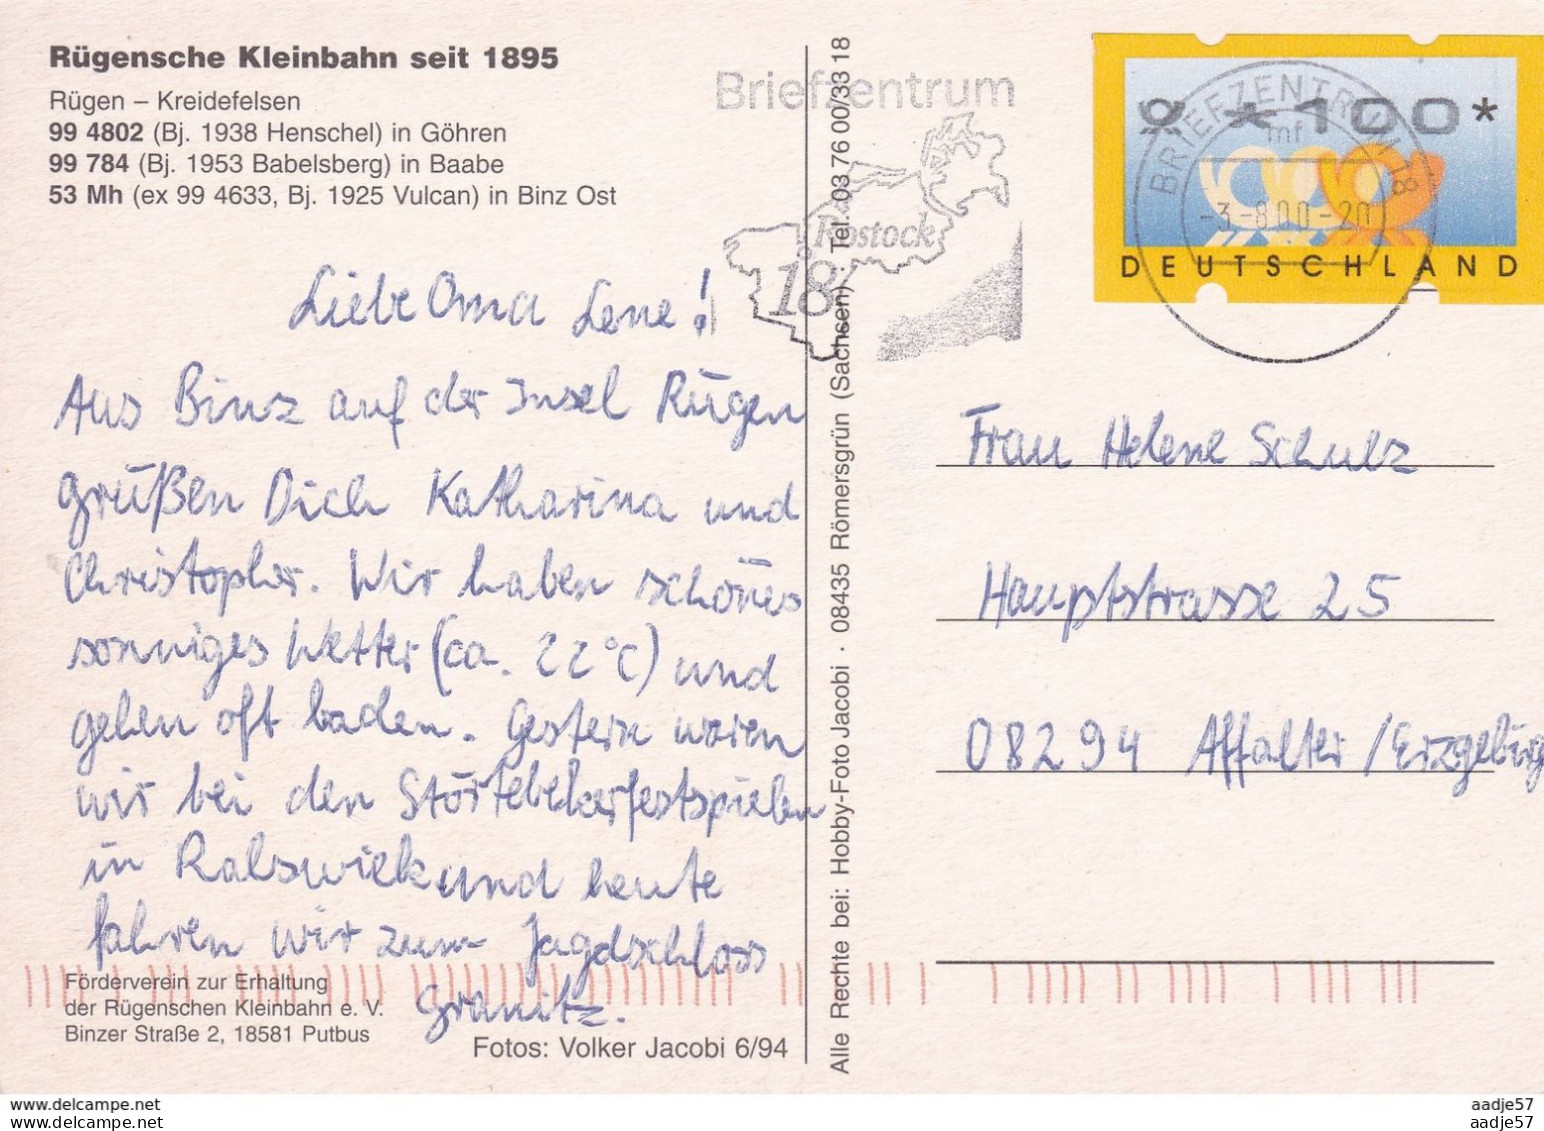 Rügensche Kleinbahn seit 1895
Rügen – Kreidefelsen
99 4802 (Bj. 1938 Henschel) in Göhren
99 784 (Bj. 1953 Babelsberg) in Baabe
53 Mh (ex 99 4633, Bj. 1925 Vulcan) in Binz Ost
Liebe Oma Lene!
Aus Binz auf der Insel Rügen
grüßen Dich Katharina und
Christopher. Wir haben schönes
sonniges Wetter (ca. 22°C) und
gehen oft baden. Gestern waren
wir bei den Störtebekerfestspielen
in Ralswiek und heute
fahren wir zum Jagdschloss
Granitz.
Förderverein zur Erhaltung
der Rügenschen Kleinbahn e. V.
Binzer Straße 2, 18581 Putbus
Fotos: Volker Jacobi 6/94
Alle Rechte bei: Hobby-Foto Jacobi · 08435 Römersgrün (Sachsen) · Tel. 03 76 00/33 18
Briefzentrum
Rostock
18
*100*
DEUTSCHLAND
BRIEFZENTRUM 18
mf
-3-8.00-20
Frau Helene Schulz
Hauptstrasse 25
08294 Affalter /Erzgebirg
aadje57
aadje57
www.delcampe.net
www.delcampe.net